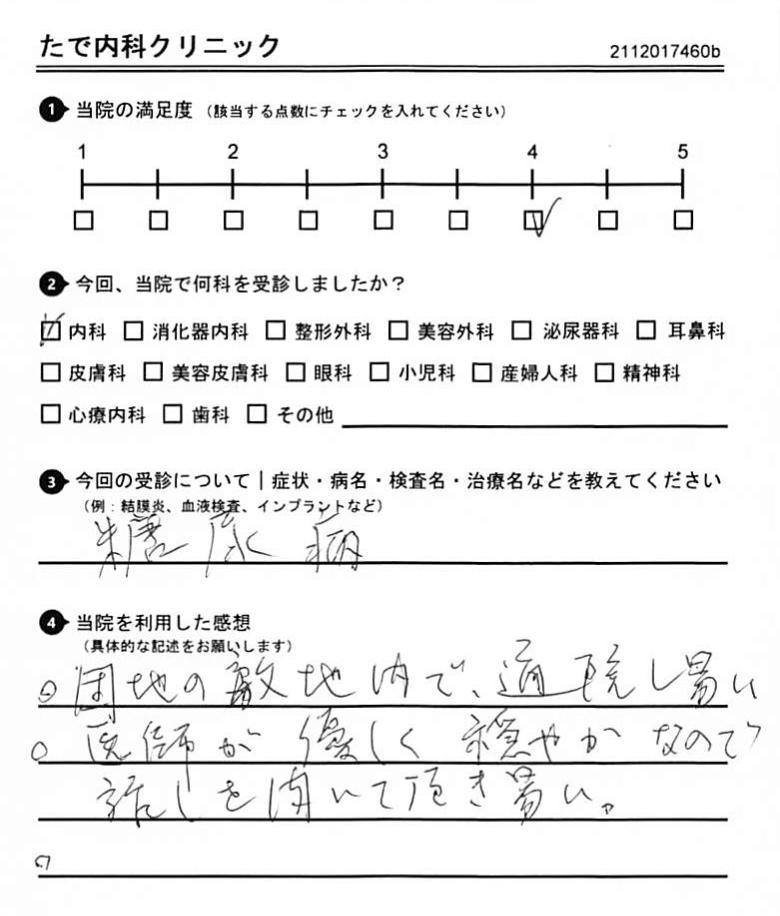 たで内科クリニック 2112017460b
1 当院の満足度 (該当する点数にチェックを入れてください)
1 2 3 4 5
2 今回、当院で何科を受診しましたか?
内科 消化器内科 整形外科 美容外科 泌尿器科 耳鼻科
皮膚科 美容皮膚科 眼科 小児科 産婦人科 精神科
心療内科 歯科 その他
3 今回の受診について | 症状・病名・検査名・治療名などを教えてください
(例:結膜炎、血液検査、インプラントなど)
糖尿病
4 当院を利用した感想
(具体的な記述をお願いします)
○団地の敷地内で、通院し易い
○医師が優しく穏やかなので
話しを聞いて頂き易い。